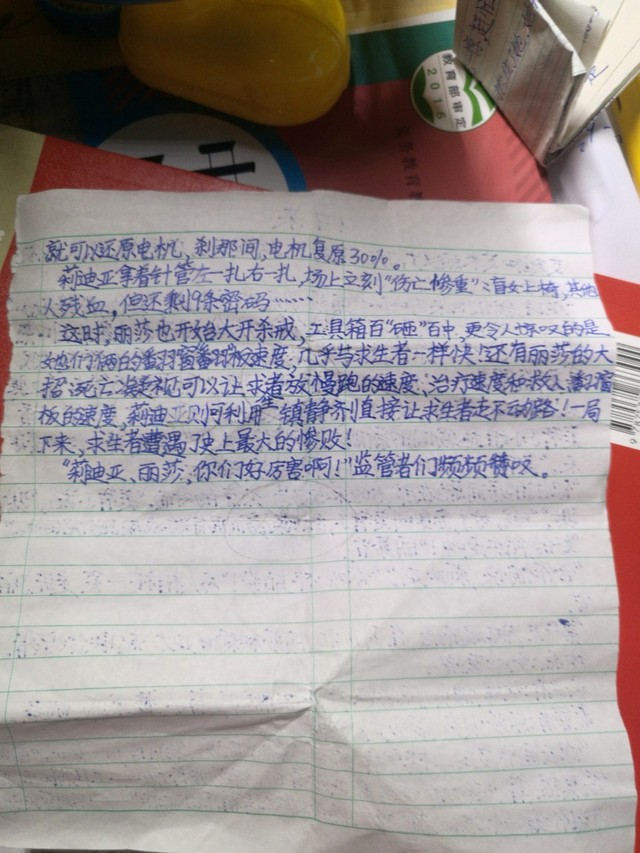 教育部审定
2016
义务教育
就可以还原电机，刹那间，电机复原30%。
莉迪亚拿着针管左一扎右一扎，场上立刻“伤亡惨重”：盲女上椅，其他
人残血，但还剩9条密码……
这时，丽莎也开始大开杀戒，工具箱百“砸”百中，更令人惊叹的是
她们俩的翻窗翻板速度，几乎与求生者一样快！还有丽莎的大
招：死亡 可以让求者放慢跑的速度、治疗速度和救人翻窗
板的速度，莉迪亚则可利用 镇静剂直接让求生者走不动路！一局
下来，求生者遭遇了史上最大的惨败！
“莉迪亚、丽莎，你们好厉害啊！”监管者们频频赞叹。